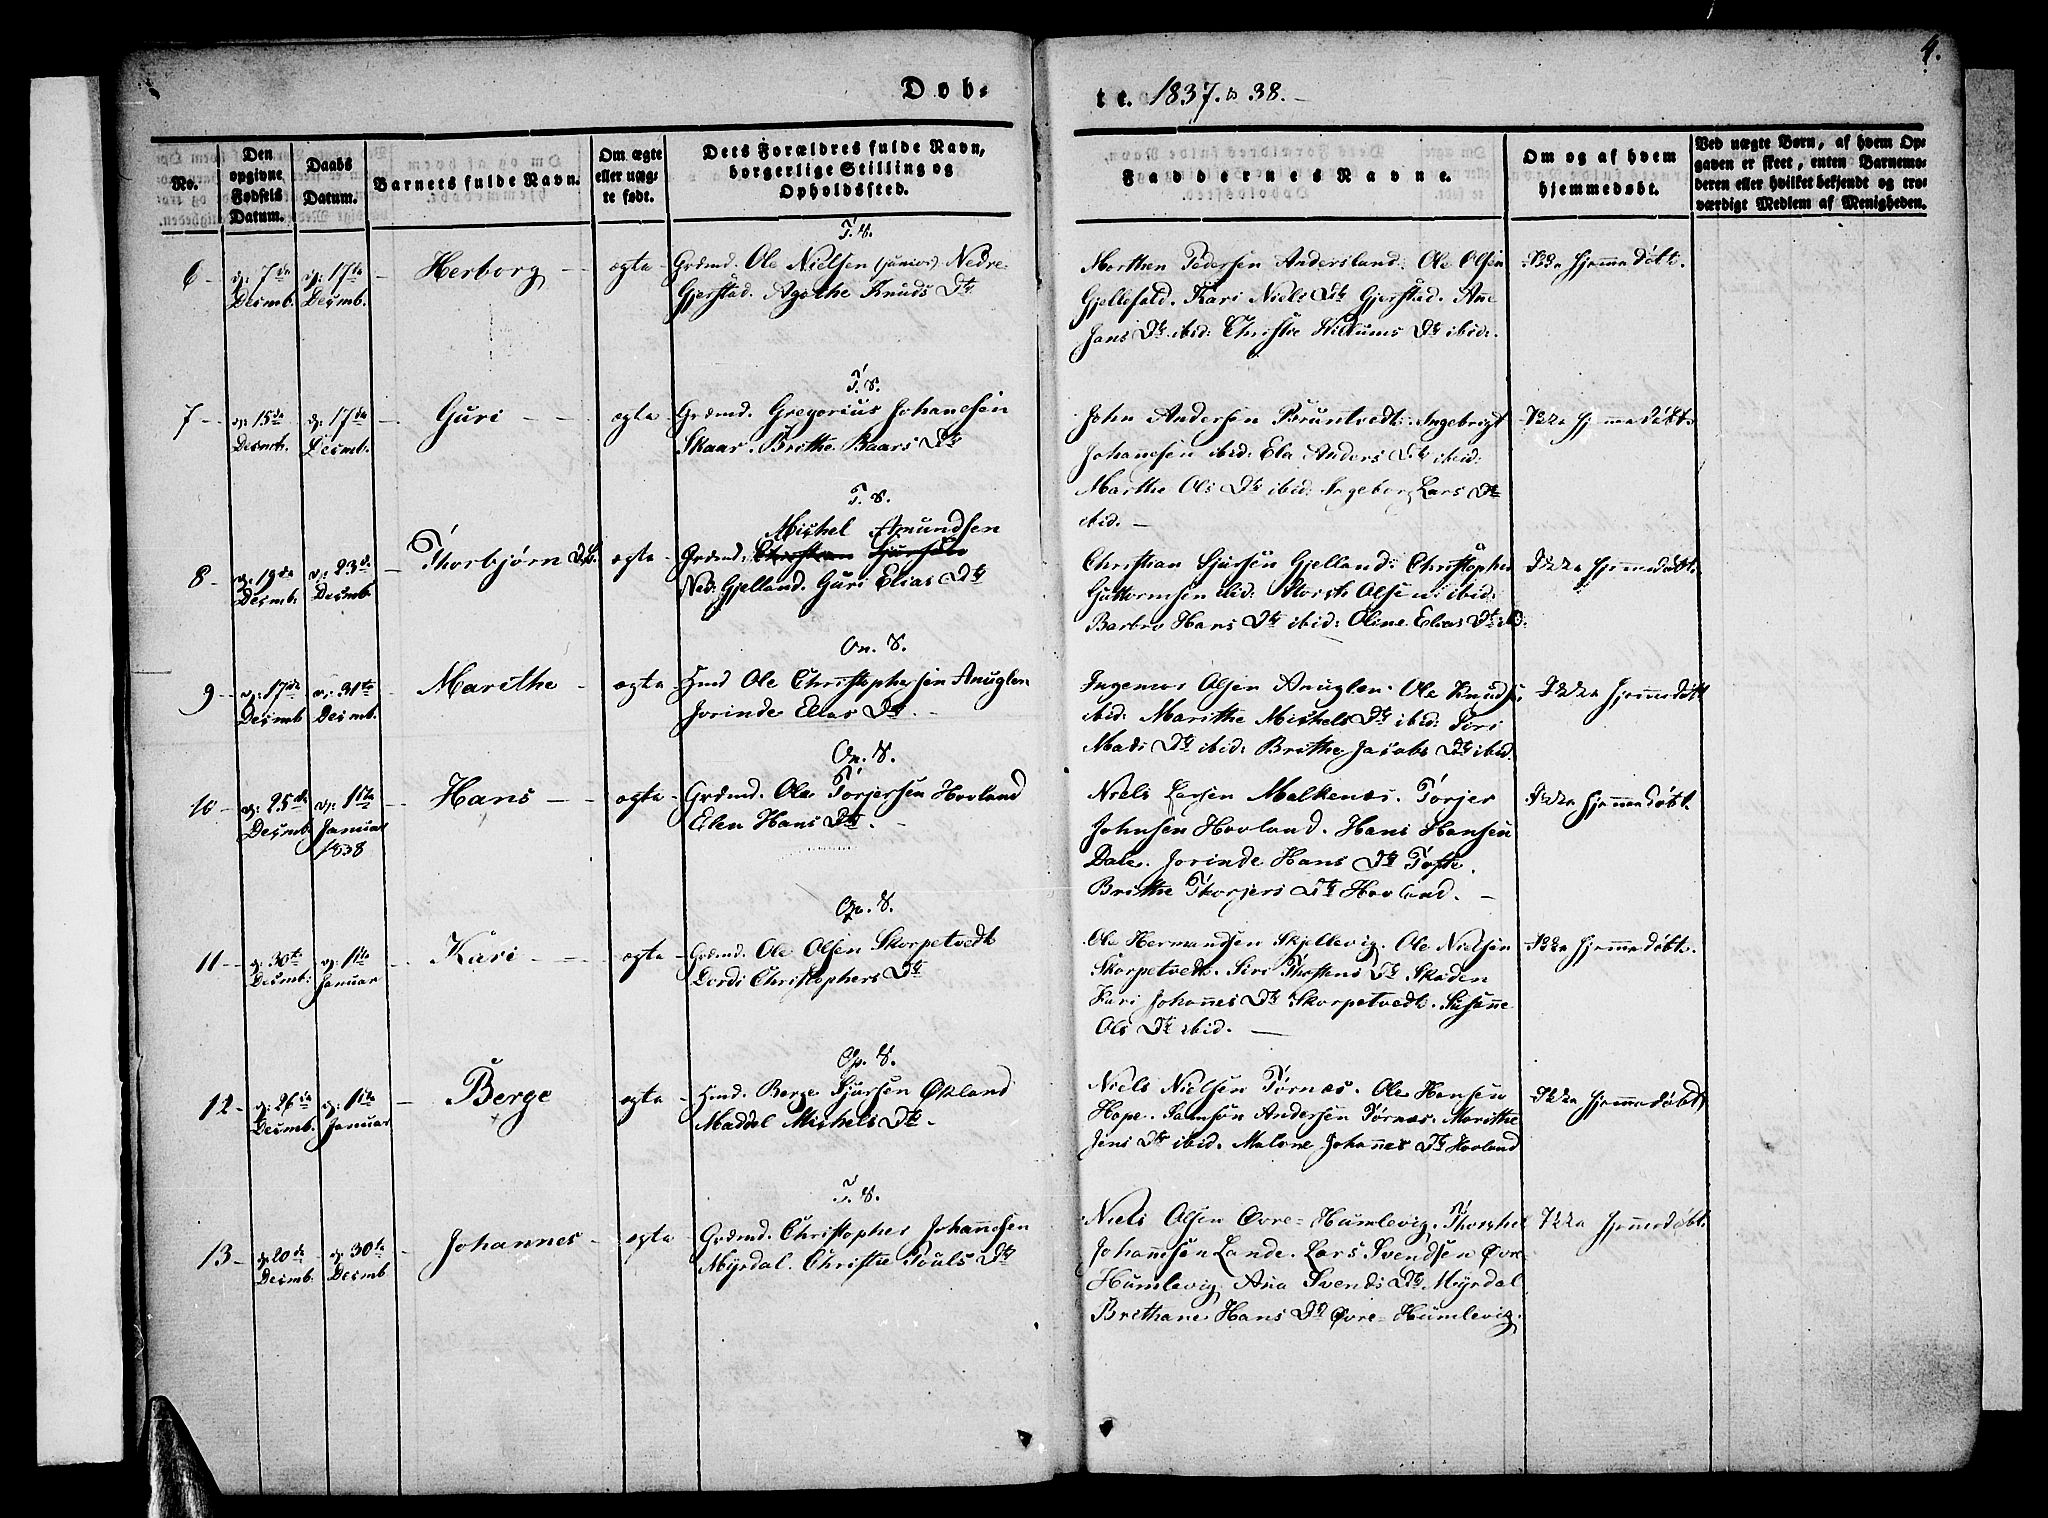 4.
Døb-
te. 1837. & 38. –
No.
Den opgivne Fødsels Datum.
Daabs Datum.
Barnets fulde Navn.
Om ægte eller uægte født.
Dets Forældres fulde Navn, borgerlige Stilling og Opholdssted.
Faddernes Navne.
Om og af hvem hjemmedøbt.
Ved uægte Børn, af hvem Opgaven er skeet, enten Barnemoderen eller hvilket bekjendt og troværdigt Medlem af Menigheden.
T. S.
6 – d: 7de Desmb. d: 17de Desmb. – Herborg – ægte – Grdmd. Ole Nielsen (junior) Nedre
Gjerstad. Agathe Knuds Dtr
Morthen Pedersen Andersland. Ole Olsen
Gjellefald. Kari Niels Dtr Gjerstad. Ane
Jans Dtr ibid: Christie Willums Dtr ibid:
Ikke hjemmedøbt.
T. S.
7 – d: 15de Desmb. d: 17de Desmb. – Guri – – ægte – Grdmd. Gregorius Johanesen
Skaar. Brithe Baars Dtr
John Andersen Bruntvedt. Ingebrigt
Johanesen ibid: Ela Anders Dtr ibid:
Marthe Ols Dtr ibid: Ingeborg Lars Dtr
ibid. –
Ikke hjemmedøbt.
T. S.
Mishel Amundsen
8 – d: 19de Desmb. d: 23de Desmb. – Thorbjørn ægte – Grdmd. Christian Sjursen
Ned: Gjelland. Guri Elias Dtr
Christian Sjursen Gjelland: Christopher
Guttormsen ibid: Olsen ibid:
Barbro Hans Dtr ibid: Oline Elias Dtr ibid.
Ikke hjemmedøbt.
On. S.
9 – d: 17de Desmb d: 31te Desmb. – Marithe – ægte – Hmd Ole Christophersen Anuglen
Jorinde Elias Dtr. –
Ingemor Olsen Anuglen. Ole Knuds:
ibid: Marithe Mishels Dtr ibid: Siri
Mads Dtr ibid: Brithe Jacobs Dtr ibid.
Ikke hjemmedøbt
On. S.
10 – d: 25de Desmb. d: 1ste Januar 1838 – Hans – – ægte – Grdmd. Ole Torjersen Hovland
Elen Hans Dtr. –
Niels Larsen Malkenæs. Torjer
Johnsen Hovland. Hans Hansen
Dale. Jorinde Hans Dtr Tofte.
Brithe Thorjers Dtr Hovland. –
Ikke hjemmedøbt.
Op. S.
11 – d: 30te Desmb: d: 1ste Januar – Kari – – ægte – Grdmd. Ole Olsen Skorpetvedt
Dordi Christophers Dtr
Ole Hermandsen Skjellevig. Ole Nielsen
Skorpetvedt. Siri Thostens Dtr Skaden
Kari Johannes Dtr Skorpetvedt. Susanne
Ols Dtr ibid. –
Ikke hjemmedøbt.
Op. S.
12 – d: 26de Desmb. d: 1ste Januar – Berge ægte – Hmd. Berge Sjursen Økland
Maddel Mishels Dtr.
Niels Nielsen Tørnæs. Ole Hansen
Hope. Samson Andersen Tørnæs. Marithe
Jens Dtr ibid. Malene Johannes Dtr Hovland
Ikke hjemmedøbt
T. S.
13 – d: 20de Desmb. d: 30te Desmb – Johannes – ægte – Grdmd. Christopher Johannesen
Myrdal. Christie Pouls Dtr
Niels Olsen Øvre-Humlevig. Thorstel
Johannesen Lande. Lars Svendsen Øvre
Humlevig. Ana Svends Dtr Myrdal
Brithane Hans Dtr Øvre-Humlevig.
Ikke hjemmedøbt.